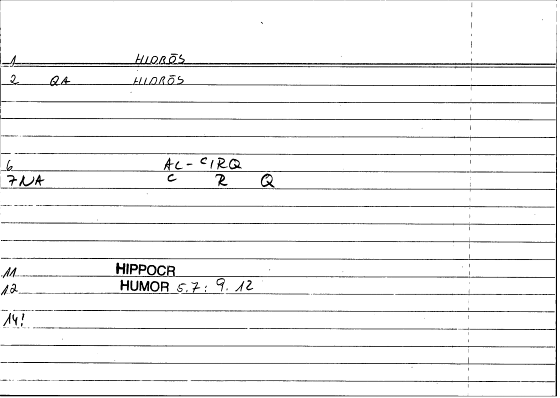 1 HIDRŌS
2 QA HIDRŌS
6 AL-CIRQ
7 NA C R Q
11 HIPPOCR
12 HUMOR 5.7: 9.12
14!